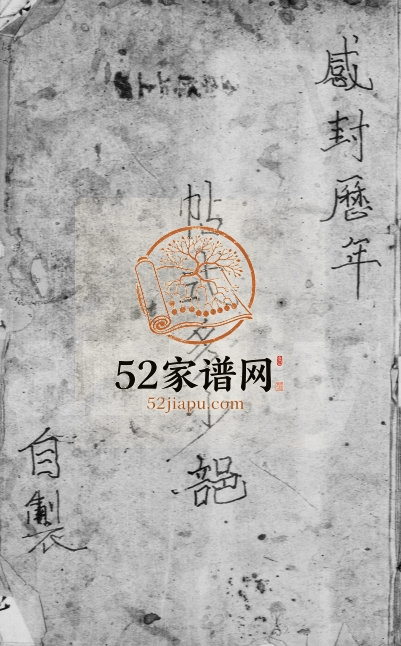 感封歷年
帖式多少部
自製
52家谱网
52jiapu.com